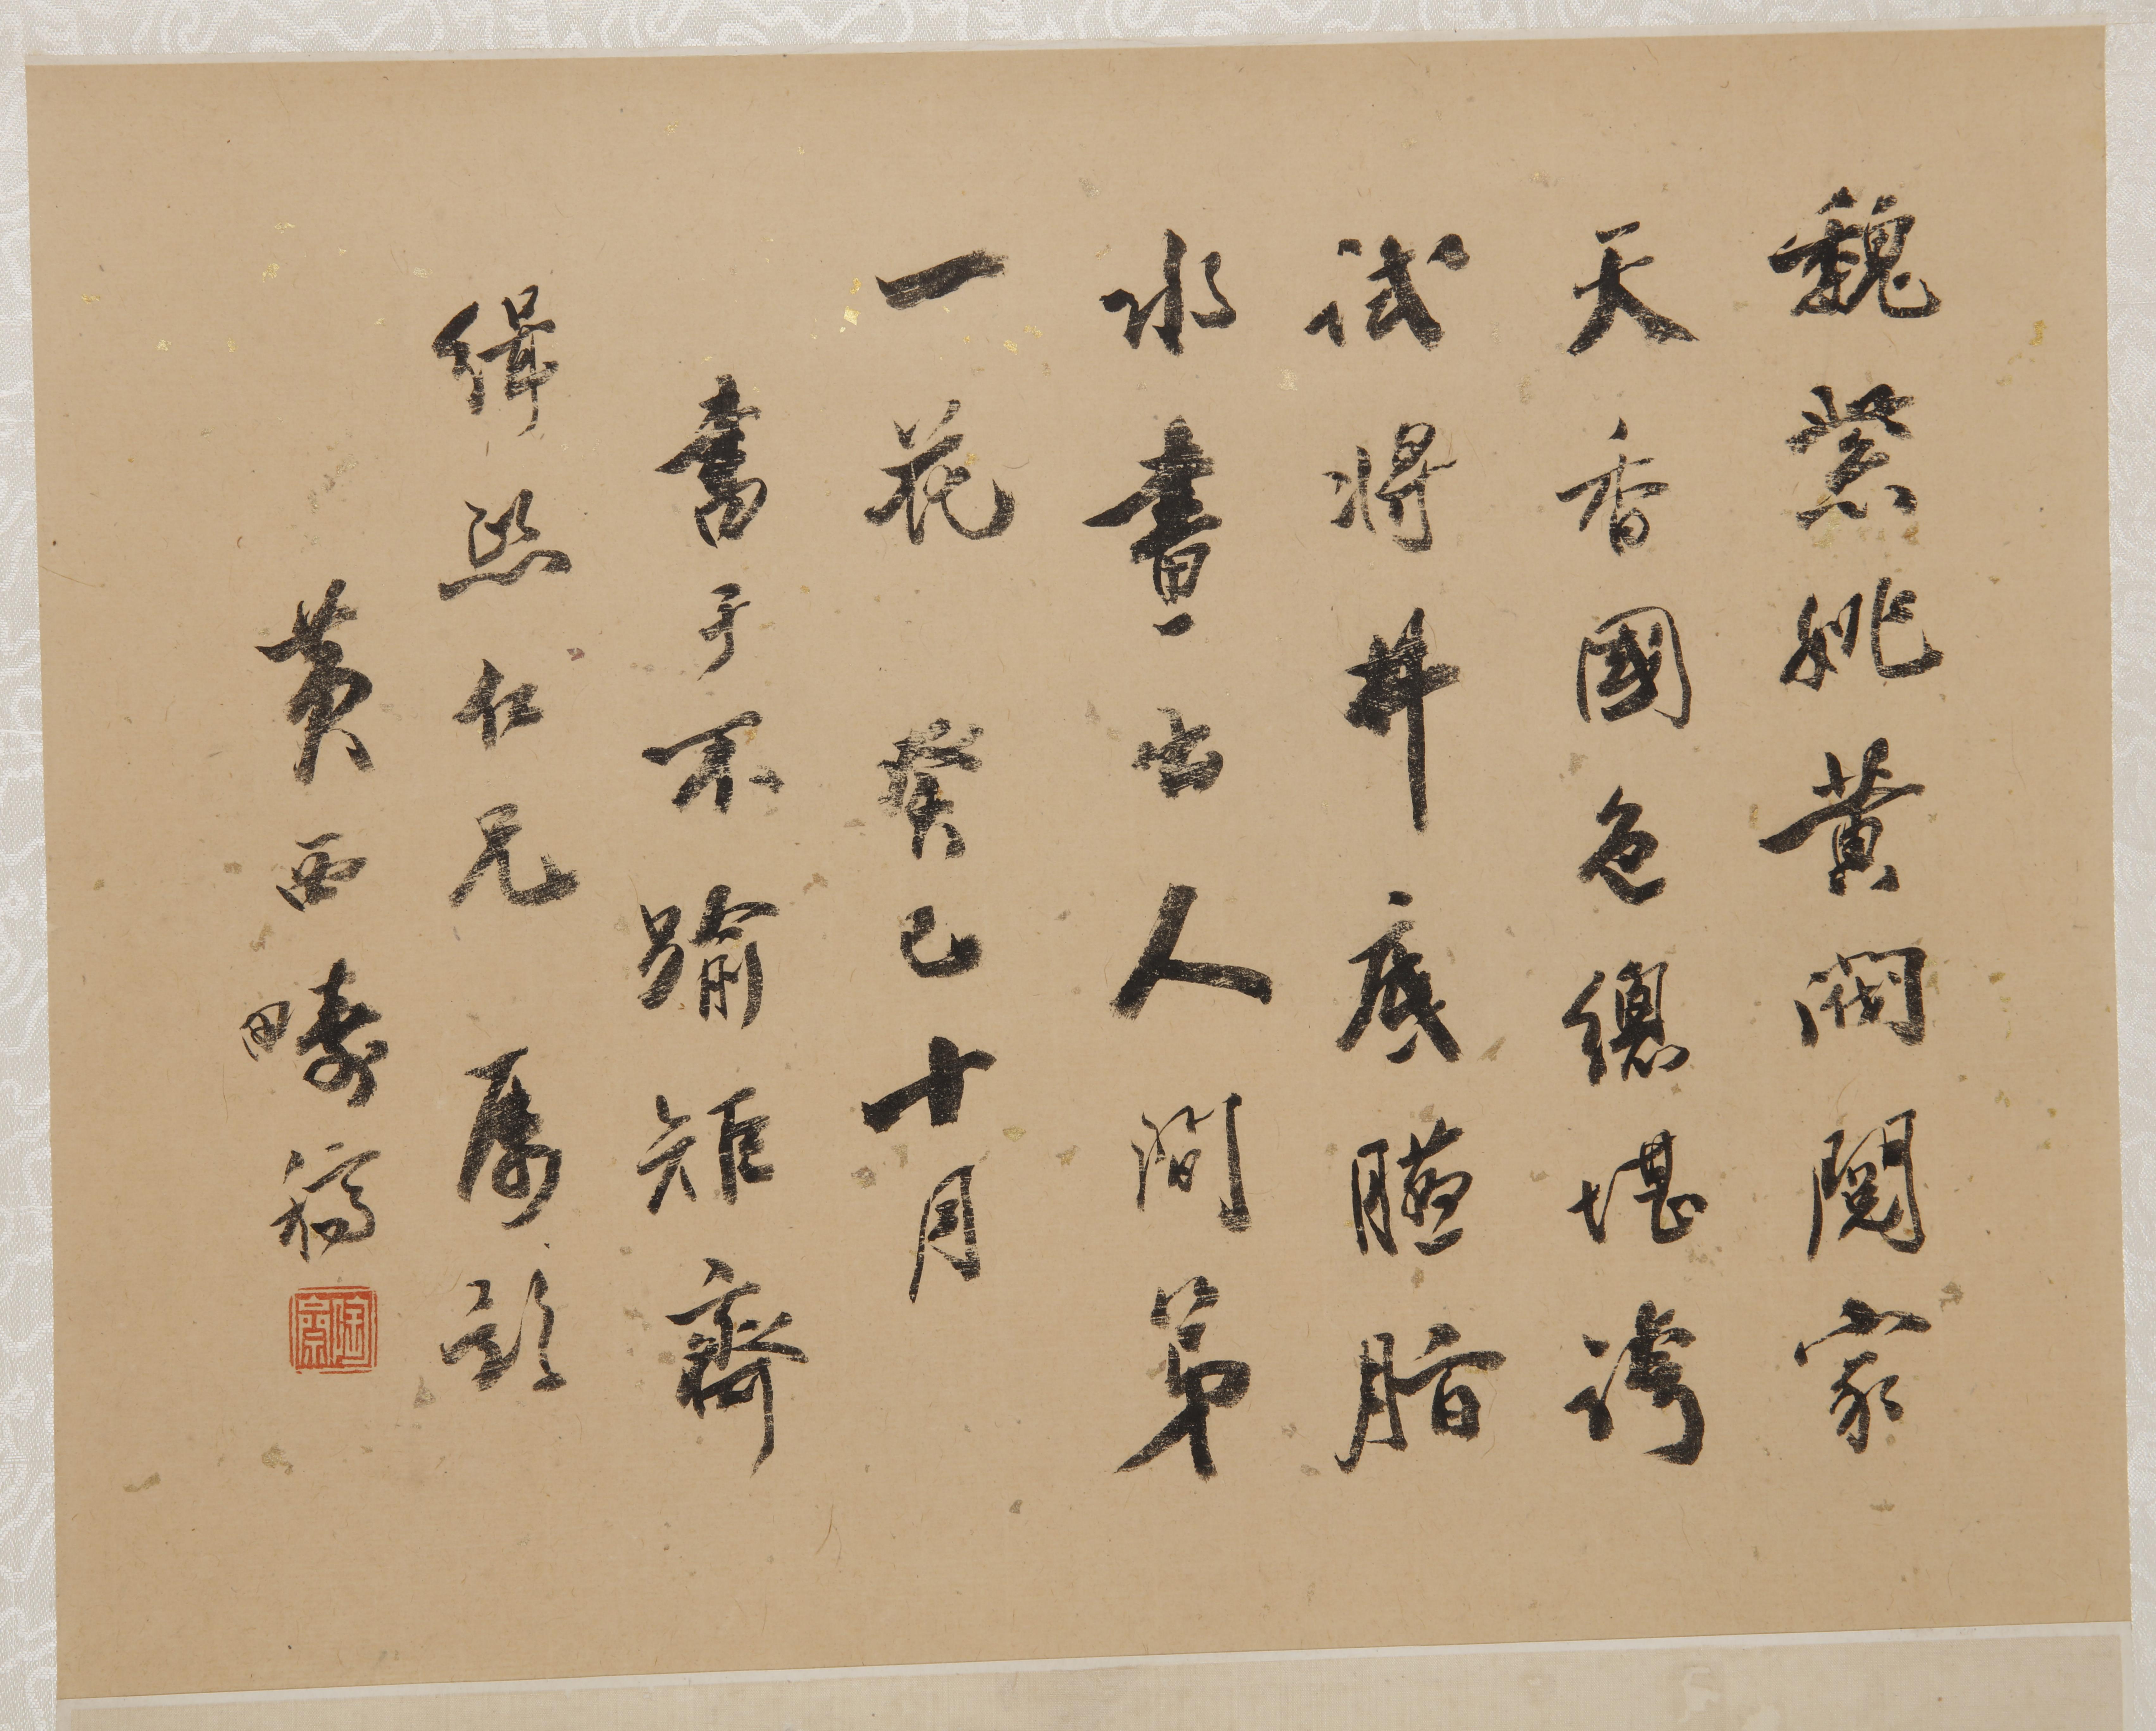 魏紫姚黃閥閱家
天香國色總堪誇
試將井底臙脂
水畫出人間第
一花 癸巳十月
書于不踰矩齋
緝熙仁兄 屬題
黃西疇稿